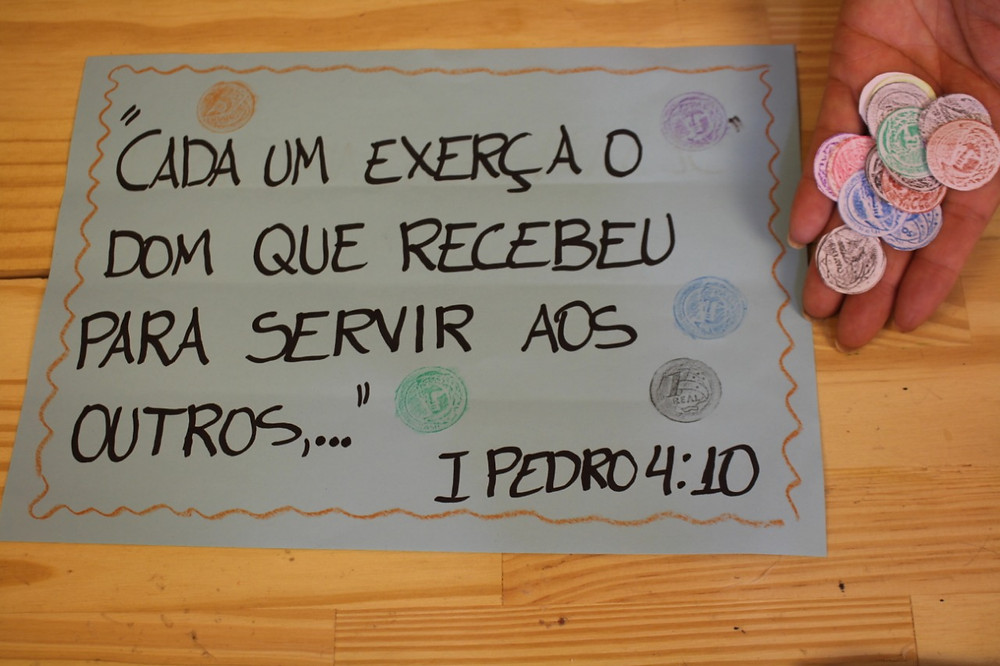 "CADA UM EXERÇA O
DOM QUE RECEBEU
PARA SERVIR AOS
OUTROS,..."
I PEDRO 4:10
1
REAL